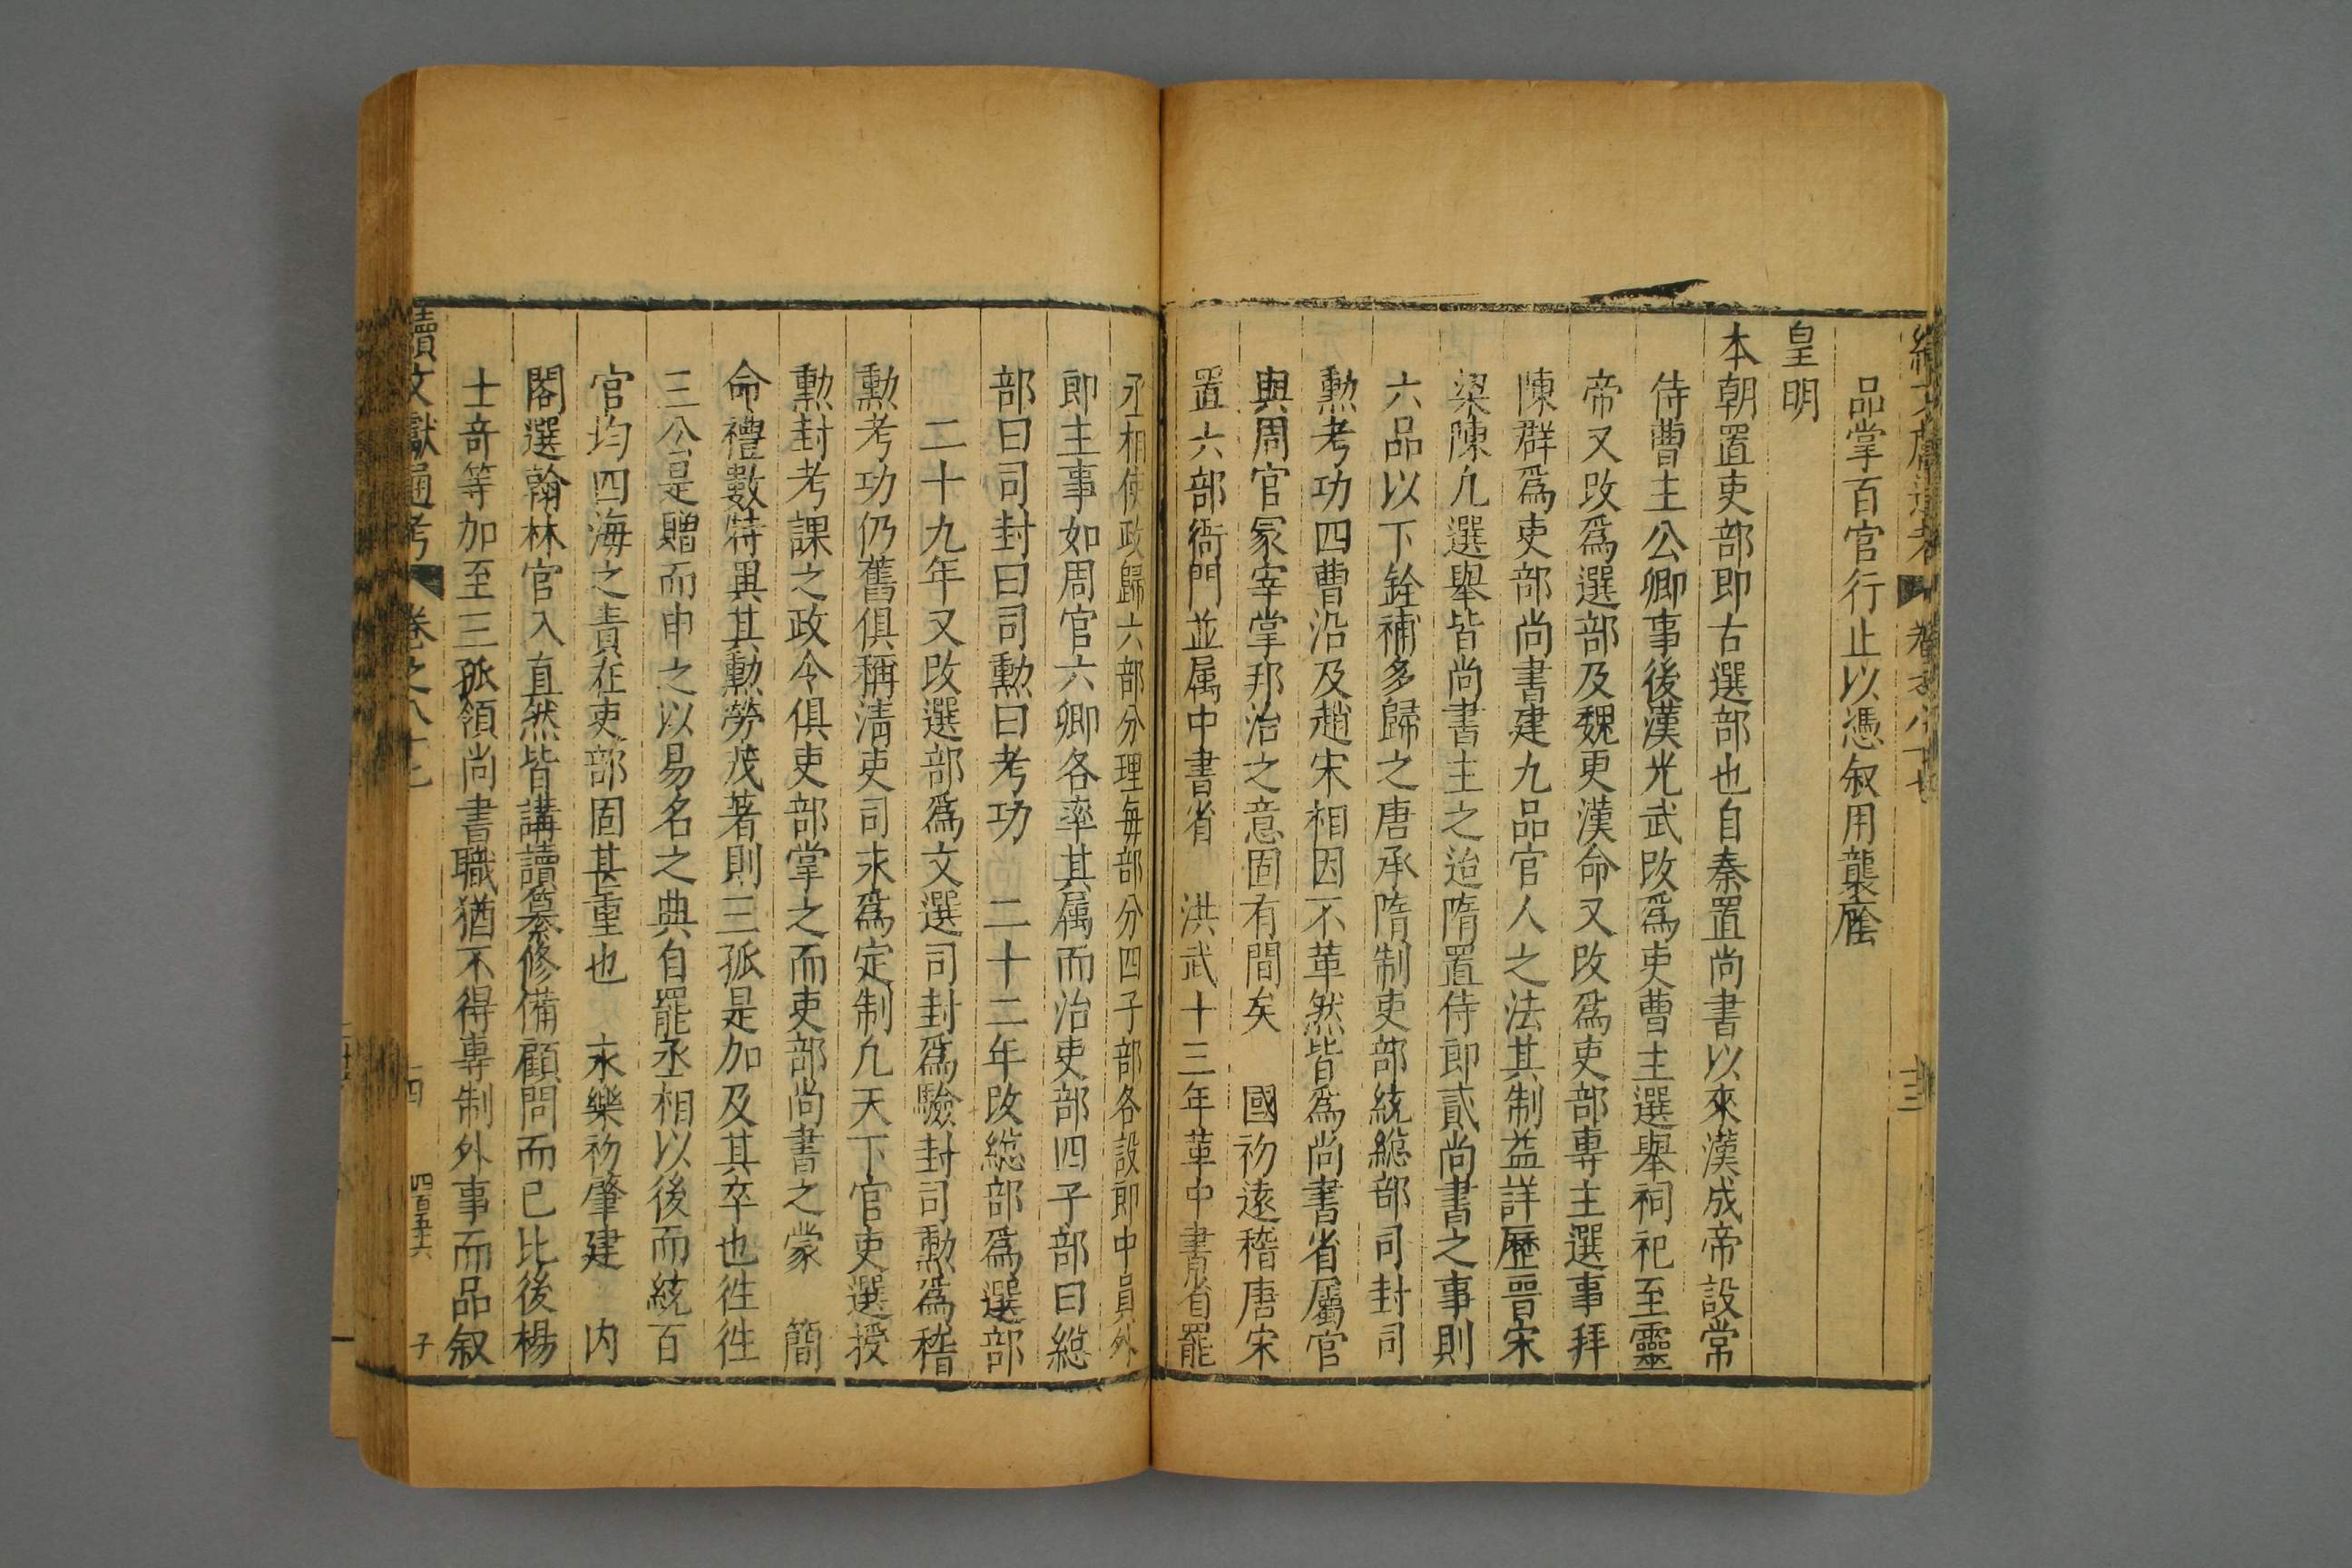 品掌百官行止以憑叙用襲廕
皇明
本朝置吏部即古選部也自秦置尚書以來漢成帝設常
侍曹主公卿事後漢光武改爲吏曹主選舉祠祀至靈
帝又改爲選部及魏更漢命又改爲吏部專主選事拜
陳群爲吏部尚書建九品官人之法其制益詳歷晉宋
梁陳凢選舉皆尚書主之迨隋置侍郎貳尚書之事則
六品以下銓補多歸之唐承隋制吏部統緫部司封司
勲考功四曹沿及趙宋相因不革然皆爲尚書省屬官
與周官冢宰掌邦治之意固有間矣 國初遠稽唐宋
置六部衙門並属中書省 洪武十三年革中書省罷
丞相使政歸六部分理每部分四子部各設郎中員外
郎主事如周官六卿各率其属而治吏部四子部曰緫
部曰司封曰司勲曰考功 二十二年改緫部爲選部
二十九年又改選部爲文選司封爲驗封司勲爲稽
勲考功仍舊俱稱清吏司永爲定制凢天下官吏選授
勲封考課之政令俱吏部掌之而吏部尚書之蒙 簡
命禮數特異其勲勞茂著則三孤是加及其卒也徃徃
三公是贈而申之以易名之典自罷丞相以後而統百
官均四海之責在吏部固甚重也 永樂初肇建 内
閣選翰林官入直然皆講讀纂修備顧問而已比後楊
士奇等加至三孤領尚書職猶不得專制外事而品叙
續文獻通考 卷之八十七 十四 四百五十六 子